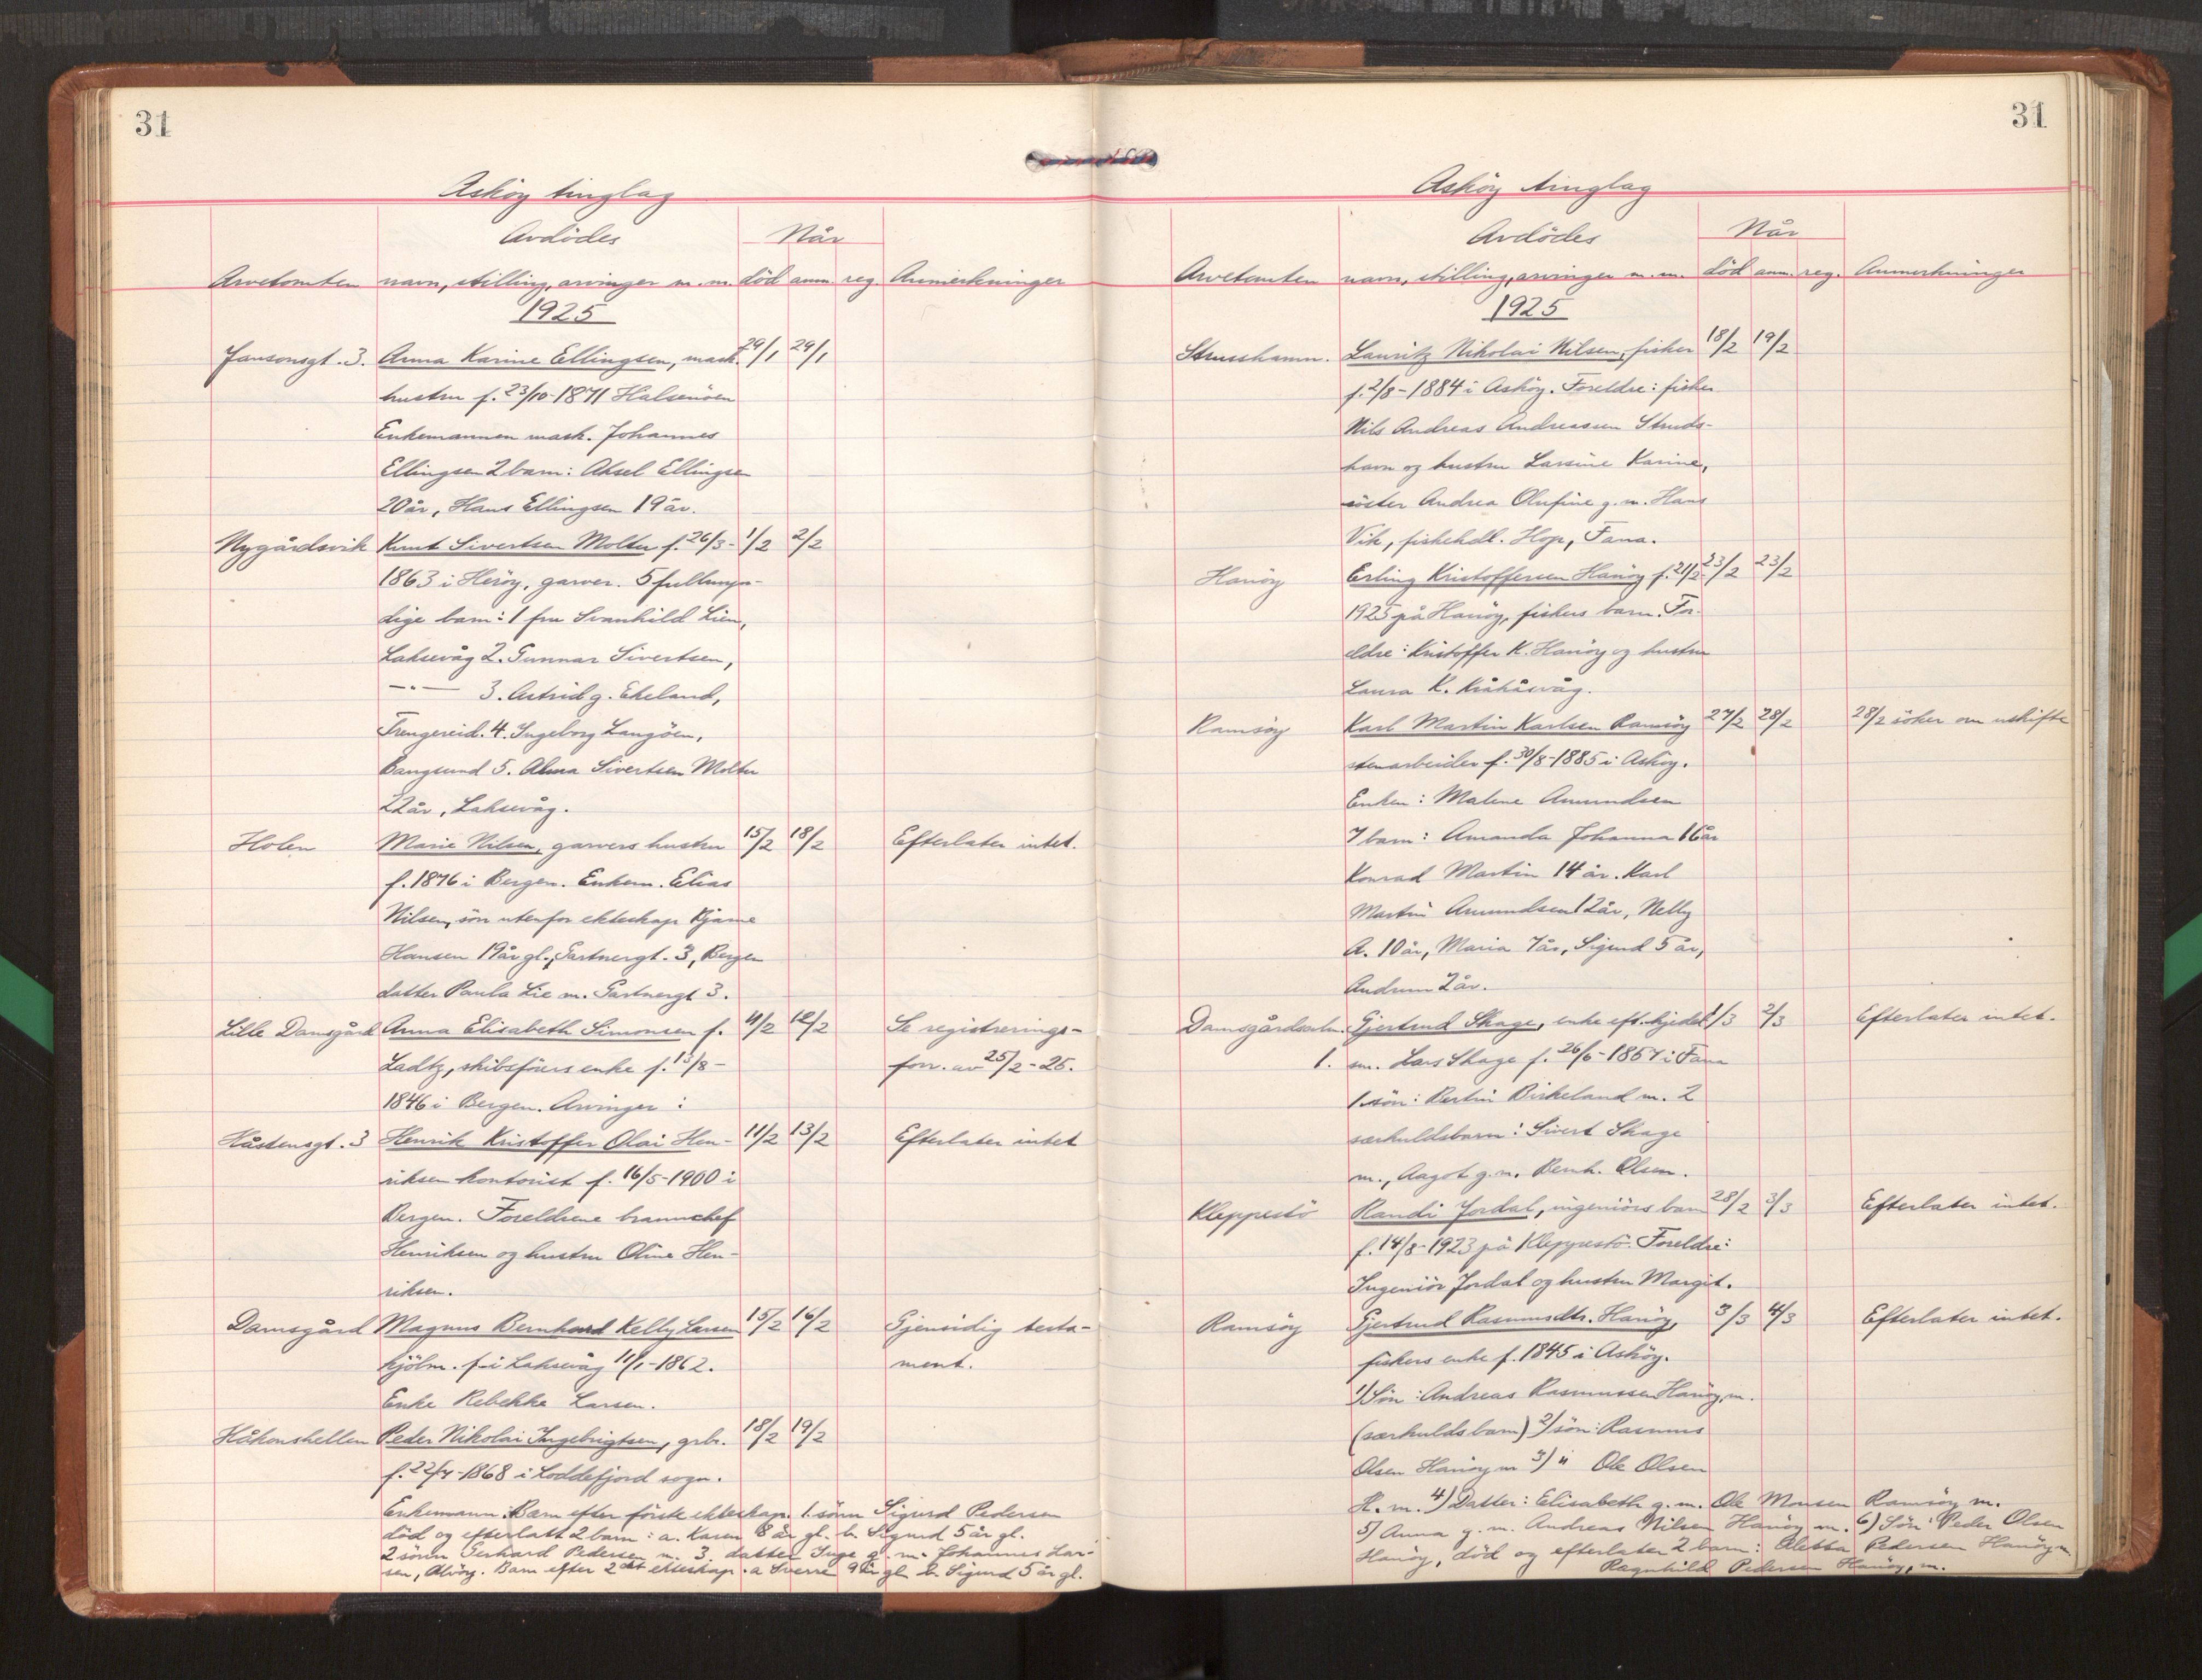 31
Askøy tinglag
Avdødes
Når
Arvetomten navn, stilling, arvinger m. m. død anm. reg. Anmerkninger
1925
Jansonsgt. 3. Anna Karine Ellingsen, mask. 29/1 29/1
hustru f. 23/10-1871 Halsenöen
Enkemannen mask. Johannes
Ellingsen 2 barn: Aksel Ellingsen
20 år, Hans Ellingsen 19 år.
Nygårdsvik Knut Sivertsen Moltu f. 26/3- 1/2 2/2
1863 i Heröy, garver. 5 fullmyn-
dige barn: 1 fru Svanhild Lien,
Laksevåg 2. Gunnar Sivertsen,
—"— 3. Astrid g. Ekeland,
Trengereid. 4. Ingeborg Langöen,
Bangsund 5. Alma Sivertsen Moltu
22 år, Laksevåg.
Holen Marie Nilsen, garvers hustru 15/2 18/2 Efterlater intet.
f. 1876 i Bergen. Enkem. Elias
Nilsen, sön utenfor ekteskap Bjarne
Hansen 19 år gl., Gartnergt. 3, Bergen
datter Paula Lie m. Gartnergt 3.
Lille Damsgård Anna Elisabeth Simonsen f. 11/2 12/2 Se registrerings-
Ladtz, skibsförers enke f. 13/8- forr. av 25/2-25.
1846 i Bergen. Arvinger:
Håstensgt. 3 Henrik Kristoffer Olai Hen- 11/2 13/2 Efterlater intet
riksen kontorist f. 16/5-1900 i
Bergen. Foreldrene brannchef
Henriksen og hustru Oline Hen-
riksen.
Damsgård Magnus Bernhard Kelly Larsen 15/2 16/2 Gjensidig testa-
kjölm. f. i Laksevåg 11/1-1862. ment.
Enke Rebekka Larsen.
Håkonshellen Peder Nikolai Ingebrigtsen, grbr. 18/2 19/2
f. 22/4-1868 i Loddefjord sogn.
Enkemann. Barn efter förste ekteskap. 1. sönn Sigurd Pedersen
död og efterlatt 2 barn: a. Karen 8 år gl. b. Sigurd 5 år gl.
2 sönn Gerhard Pedersen m. 3. datter Inga g. m. Johannes Lar-
sen, Alvöy. Barn efter 2det ekteskap. a Sverre 9 år gl b. Sigurd 5 år gl.
31
Askøy tinglag
Avdödes
Når
Arvetomten navn, stilling, arvinger m. m. död anm. reg. Anmerkninger
1925
Strusshamn. Lauritz Nikolai Nilsen, fisker 18/2 19/2
f. 2/8-1884 i Asköy. Foreldre: fisker
Nils Andreas Andreassen Struds-
havn og hustru Larsine Karine,
söster Andrea Olufine g. m. Hans
Vik, fiskehdl. Hop, Fana.
Hanöy Erling Kristoffersen Hanöy f. 21/2- 23/2 23/2
1925 på Hanöy, fiskers barn. For-
eldre: Kristoffer K. Hanöy og hustru
Laura K. Kråkåsvåg.
Ramsöy Karl Martin Karlsen Ramsöy 27/2 28/2 28/2 söker om uskifte
stenarbeider f. 30/8-1885 i Asköy.
Enken: Malene Amundsen
7 barn: Amanda Johanna 16 år
Konrad Martin 14 år. Karl
Martin Amundsen 12 år, Nelly
A. 10 år, Maria 7 år, Sigurd 5 år,
Andrine 2 år.
Damsgårdsalm. Gjertrud Skage, enke eft. kjedel 1/3 2/3 Efterlater intet.
1. sm. Lars Skage f. 26/6-1857 i Fana
1. sön: Bertin Birkeland m. 2
særkuldsbarn: Sivert Skage
m., Aagot g. m. Bernh. Olsen.
Kleppestö Randi Jordal, ingeniörs barn 28/2 3/3 Efterlater intet.
f. 14/8-1923 på Kleppestö. Foreldre:
Ingeniör Jordal og hustru Margit.
Ramsöy Gjertrud Rasmusdtr. Hanöy, 3/3 4/3 Efterlater intet.
fiskers enke f. 1845 i Asköy.
1) Sön: Andreas Rasmussen Hanöy, m.
(særkuldsbarn) 2) sön: Rasmus
Olsen Hanöy m 3) " Ole Olsen
H. m. 4) Datter: Elisabeth g. m. Ole Monsen Ramsöy m.
5) Anna g. m. Andreas Nilsen Hanöy m. 6) Sön: Peder Olsen
Hanöy, död og efterlater 2 barn: Aletta Pedersen Hanöy m.
Ragnhild Pedersen Hanöy, m.